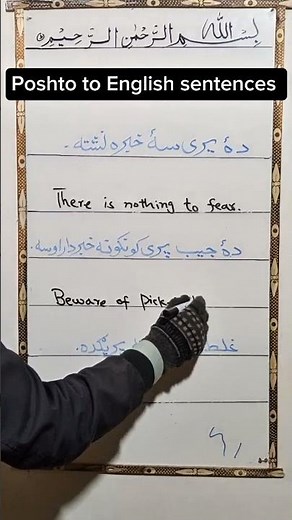 بِسْمِ اللهِ الرَّحْمٰنِ الرَّحِيْمِ
Poshto to English sentences
دۀ یری سۀ خبره نشته۔
There is nothing to fear.
دۀ جیب پری کونکو نه خبردار اوسه۔
Beware of Pick